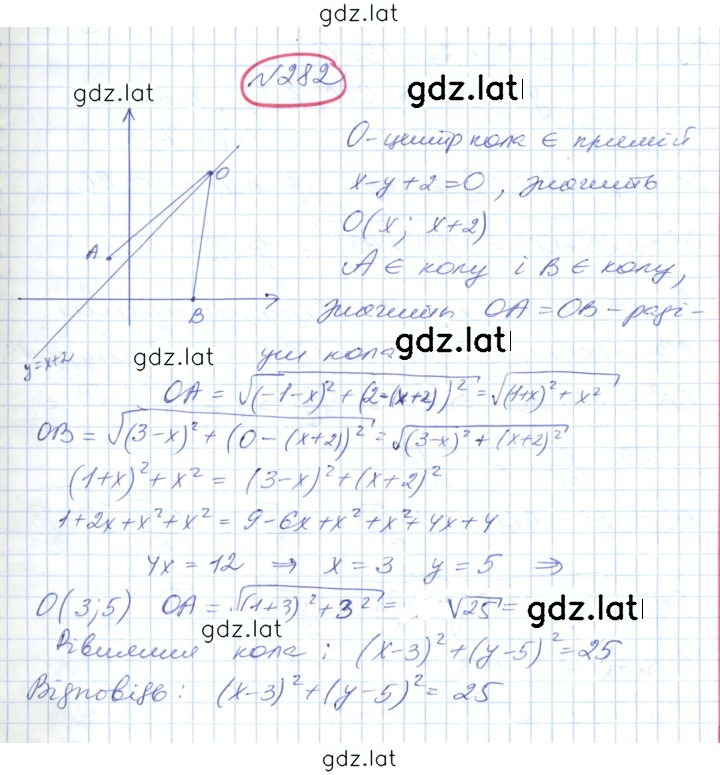 gdz.lat
№282
gdz.lat
gdz.lat
O - центр кола ∈ прямій
x-y+2=0, значить
O(x; x+2)
A ∈ колу і B ∈ колу,
значить OA = OB - раді-
уси кола
gdz.lat
gdz.lat
A
O
B
y=x+2
OA = √((-1-x)²+(2-(x+2))²) = √((1+x)²+x²)
OB = √((3-x)²+(0-(x+2))²) = √((3-x)²+(x+2)²)
(1+x)²+x² = (3-x)²+(x+2)²
1+2x+x²+x² = 9-6x+x²+x²+4x+4
4x=12 ⇒ x=3 y=5 ⇒
O(3;5) OA = √((1+3)²+3²) = √25 = gdz.lat
gdz.lat
Рівняння кола: (x-3)²+(y-5)²=25
Відповідь: (x-3)²+(y-5)²= 25
gdz.lat